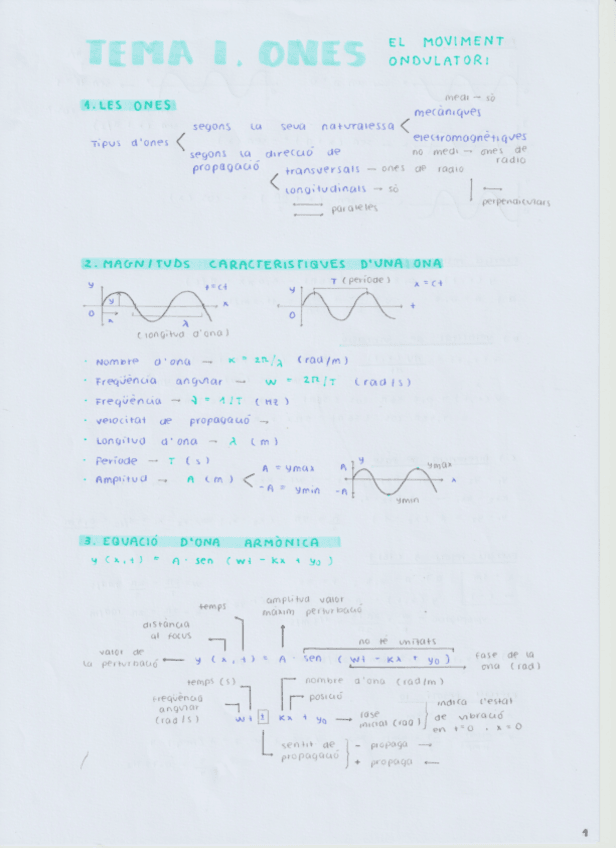 TEMA 1. ONES
EL MOVIMENT
ONDULATORI
1. LES ONES
Tipus d'ones
segons la seva naturalessa
medi → só
mecàniques
electromagnètiques
no medi → ones de
ràdio
segons la direcció de
propagació
transversals → ones de ràdio
longitudinals → só
paraleles
perpendiculars
2. MAGNITUDS CARACTERISTIQUES D'UNA ONA
y
t = ct
y
x
0
x
λ
(longitud d'ona)
T (període)
y
x = ct
0
t
· Nombre d'ona → K = 2π/λ (rad/m)
· Freqüència angular → W = 2π/T (rad/s)
· Freqüència → λ = 1/T (Hz)
· Velocitat de propagació →
· Longitud d'ona → λ (m)
· Període → T (s)
· Amplitud → A (m)
A = ymax
-A = ymin
y
A
-A
x
ymax
ymin
3. EQUACIÓ D'ONA ARMÒNICA
y (x,t) = A · sen (wt - kx + y₀)
amplitud valor
màxim perturbació
temps
distància
al focus
no té unitats
valor de
la perturbació
y (x, t) = A · sen (wt - kx + y₀)
fase de la
ona (rad)
temps (s)
nombre d'ona (rad/m)
posició
freqüència
angular
(rad/s)
wt ± kx + y₀
fase
inicial (rad)
indica l'estat
de vibració
en t=0 , x=0
sentit de
propagació
- propaga →
+ propaga ←
1